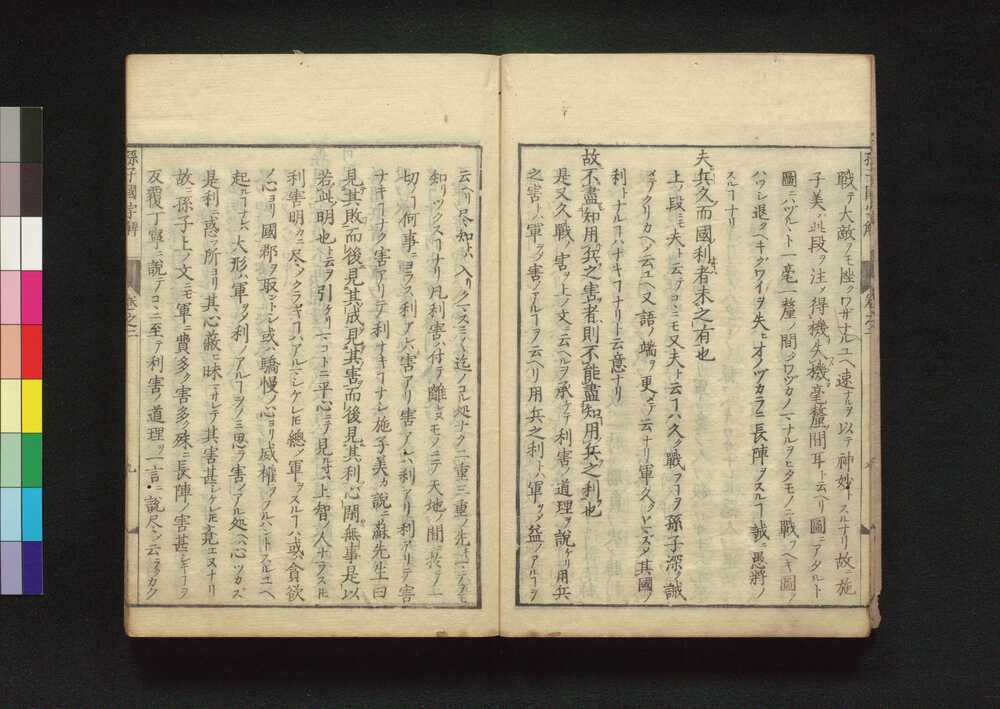 職テ大敵ヲモ挫クワザナルユヘ速ナルヲ以テ神妙トスルナリ故ニ施
子美ハ此段ヲ注ノ得機失機毫釐間耳ト云ヘリ圖ニアタルト
圖ニハヅルヽト一毫一釐ノ間ニワヅカノヿナルヲヒタモノニ戰フヘキ圖ノ
ハツシ退クヘキグワイヲ失ヒオノヅカラニ長陣ヲスルヿ誠ニ愚將ノ
スルヿナリ
夫兵久而國利者未之有也
上ノ段ニモ夫ト云テコヽニモ又夫ト云ヿハ久ク戰フヿヲ孫子深ク誡
テクリカヘシ云ユヘ又語ノ端ヲ更メテ云ナリ軍久シテ其國ノ
利トナルヿハナキヿナリト云意ナリ
故不盡知用兵之害者則不能盡知用兵之利也
是又久戰ノ害ヲ上ノ文ニ云ヘルヲ承テ利害ノ道理ヲ說ケリ用兵
之害トハ軍ヲシテ害ノアルヿヲ云ヘリ用兵之利トハ軍ヲシテ益ノアルヿヲ
云ヘリ尽知トハ入リクミスミ〱迄ノコル処ナク二重三重ノ先
知リツクスヿナリ凡利害ハ付テ離レヌモノニテ天地ノ間ニ
切ノヿ何事ニヨラス利アレハ害アリ害アレハ利アリ利アリテ害
ナキヿナク害アリテ利ナキヿナシ施子美カ說ニ蘇先生曰
見其敗而後見其成見其害而後見其利心閑無事是以
若此明也ト云ヲ引ケリマコトニ平心ニテ見ルトキハ上智ノ人ナラスモ
利害明カニ尽シクラキヿハアルマシケレ𪜈總シテ軍ヲスルヿハ或ハ貪欲
ノ心ヨリ國郡ヲ取ントシ或ハ驕慢ノ心ヨリ威權ヲフルハントスルユヘ
起ルヿナレハ大形ハ軍ヲシテ利ノアルヿヲノミ思ヒ害ノアル処ヘハ心ツカズ
是利ニ惑フ所ヨリ其心蔽ヒ昧マサレテ其害甚シケレ𪜈見エヌナリ
故ニ孫子上ノ文ニモ軍ニ費多ク害多ク殊ニ長陣ノ害甚シキヿヲ
反覆丁寧ニ說テコヽニ至テ利害ノ道理ヲ一言ニ說尽シテ云ヘルカク
孫子國字解
卷之二
九